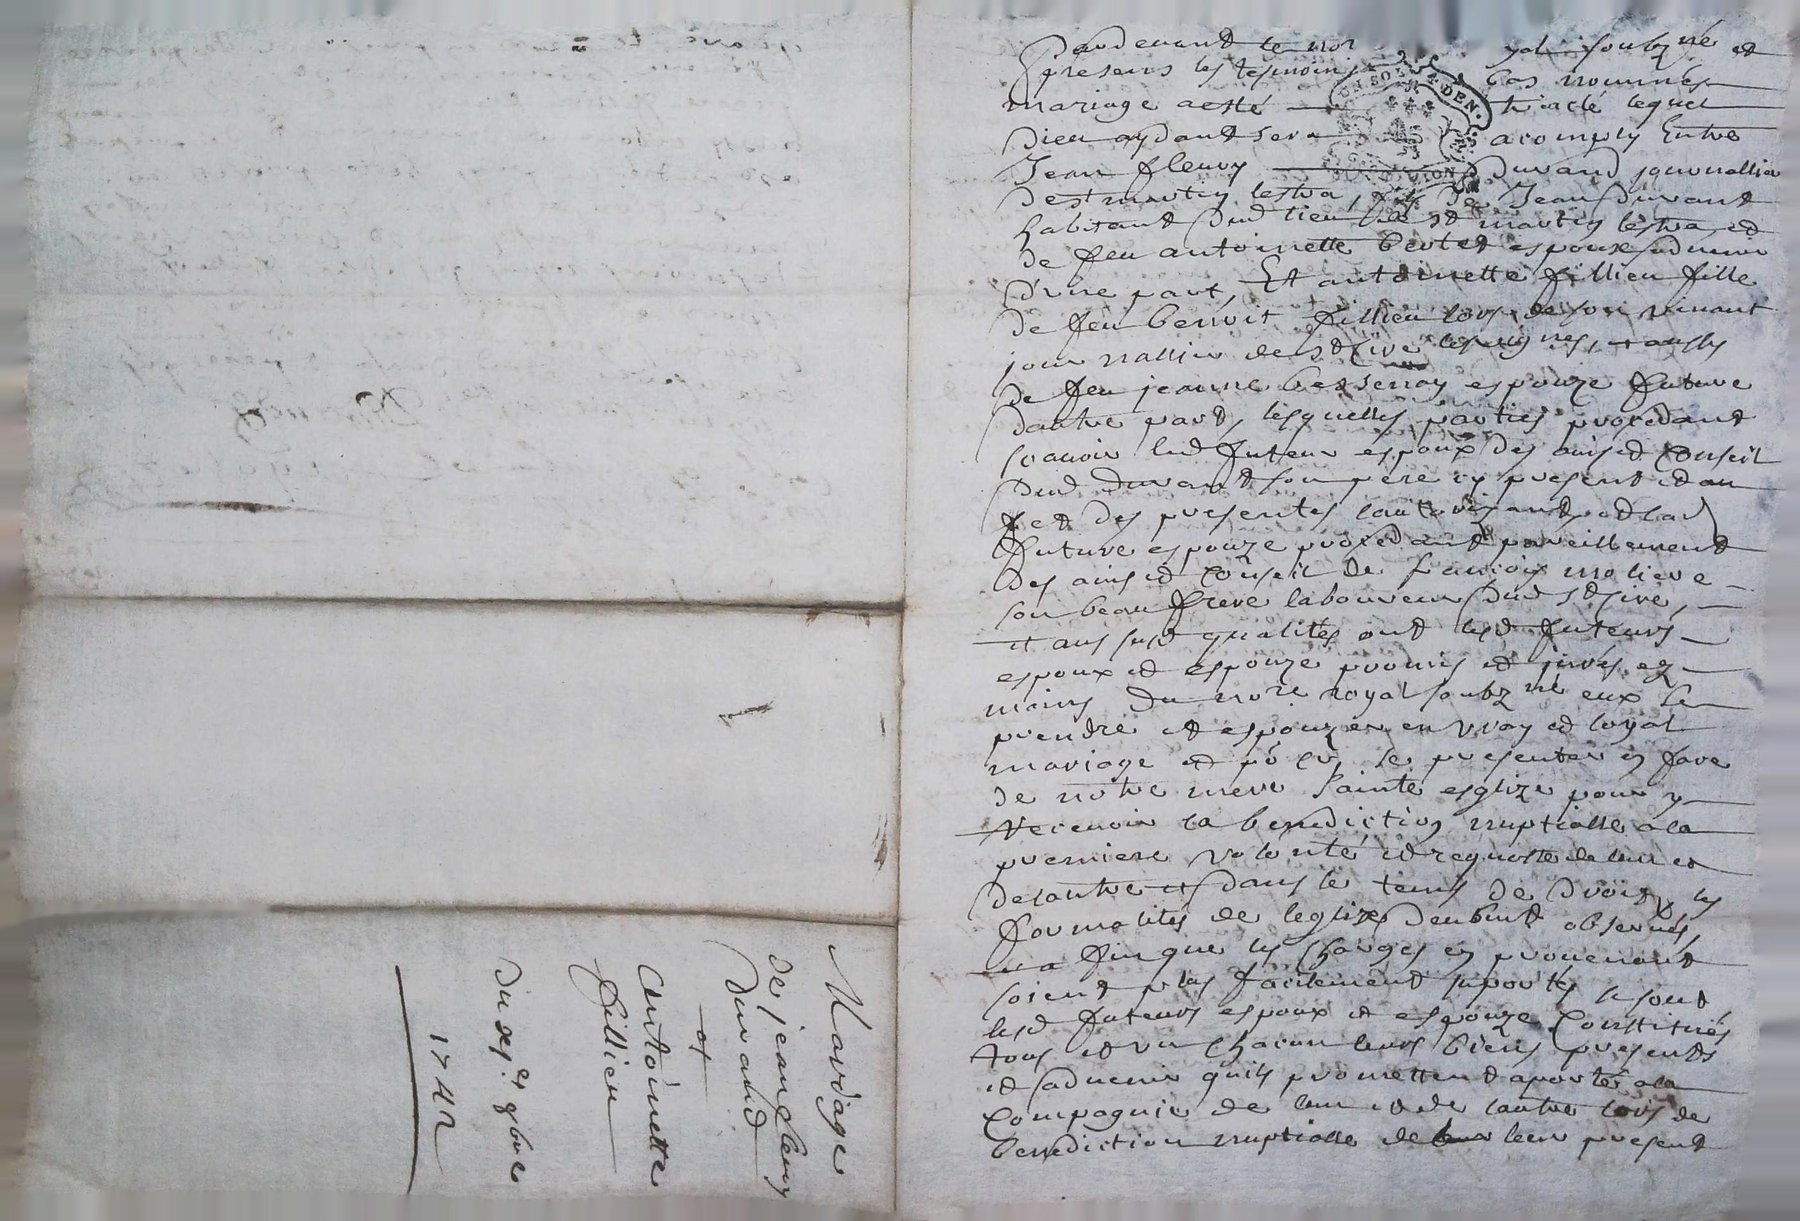 Mariage
de jean fleury
Durand
et
Antoinette
fillieu
Du 9bre
1742
Pardevant le no yal soubz né et
presens les tesmoins bas nommés
mariage a esté traicté lequel
Dieu aydant sera acomply Entre
Jean fleury Durand journallier
de st martin lestra, fils de Jean Durand
habitant dud lieu de st martin lestra, et
de feu antoinette espoux advenir
d'une part, Et antoinette fillieu fille
de feu benoit fillieu lors de son vivant
journallier de st Cire les vignes, et aussy
de feu jeanne espouze future
dautre part, lesquelles parties procedant
scavoir led futeur espoux des avis et Conseil
dud durand son pere icy present et au
fet des presentes lautorizant, et lad
future espouze procedant pareillement
des avis et Conseil de françois moliere
son beau frere laboureur dud st Cire,
et aus susd qualités ont lesd futeurs
espoux et espouze promis et jurés ez
mains du nore royal soubz né eux
prendre et espouzer en vray et loyal
mariage et po Cy se presenter en face
de notre mere Sainte esglize pour y
Recevoir la benediction nuptialle a la
premiere volonté et requeste de lun et
de lautre et dans le tems de droit, les
formalités de leglize deubment observés,
et a fin que les charges en provenant
soient plus facilement suportés se sont
lesd futeurs espoux et espouze Constitués
tous et un chacun leurs biens presents
et advenir quils promettent aporter a la
Compagnie de lun et de lautre lors de
benediction nuptialle de leur present